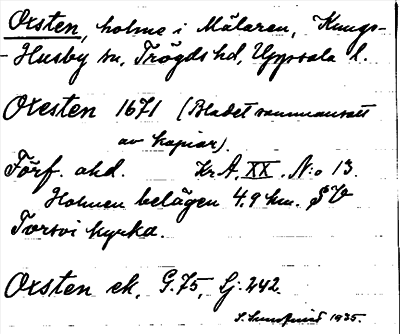 Oxsten, holme i Mälaren, Kungs-
-Husby sn, Trögds hd, Uppsala l.
Oxesten 1671 (Bladet sammansatt
av kopior).
Förf. okd. Kr A. XX. N:o 13.
Holmen belägen 4.9 km. SV
Torsvi kyrka.
Oxsten ek. G.75, Lj: 242.
S. 1935.